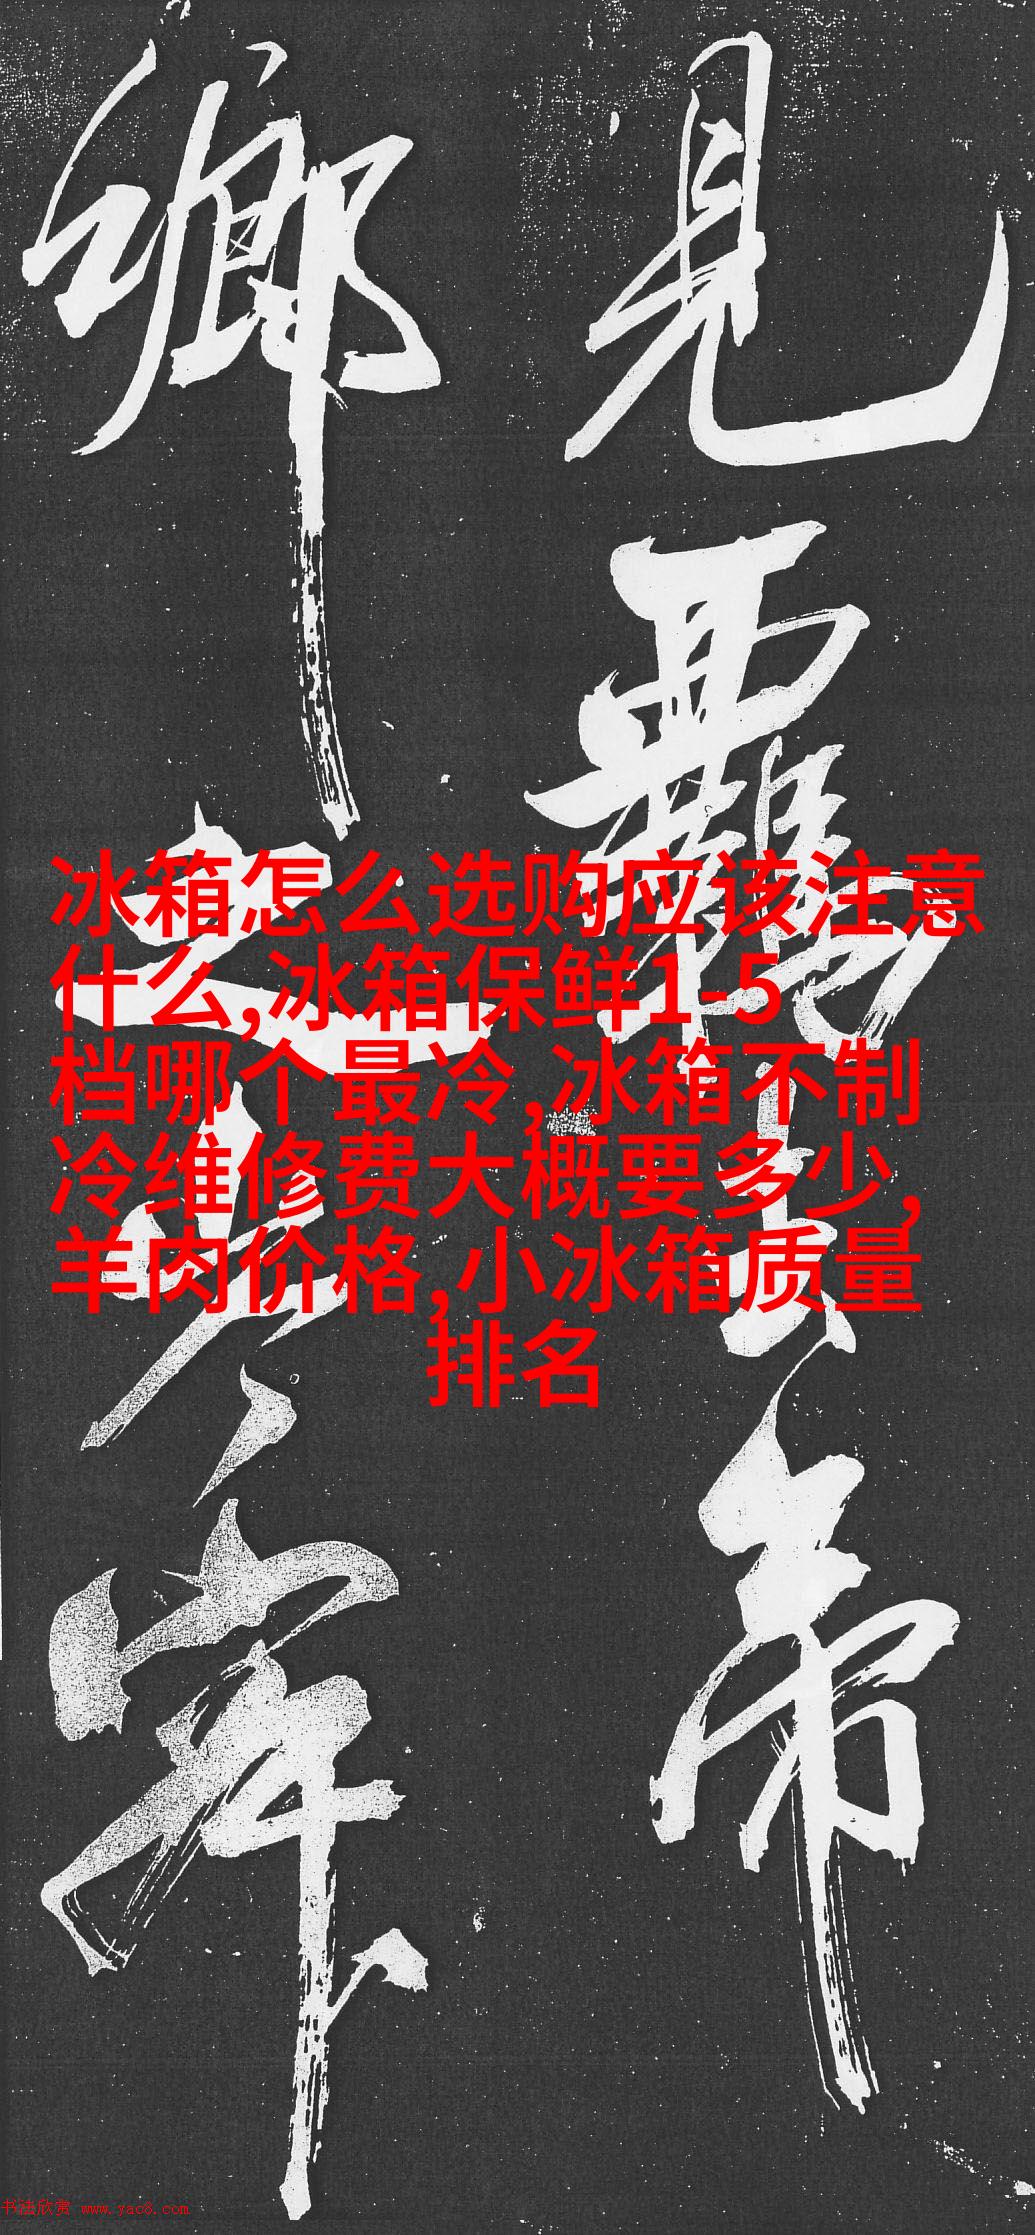 見羈出帝
鄉之
冰箱怎么选购应该注意
什么,冰箱保鲜1-5
档哪个最冷,冰箱不制
冷维修费大概要多少,
羊肉价格,小冰箱质量
排名
书法欣赏 www.yac8.com